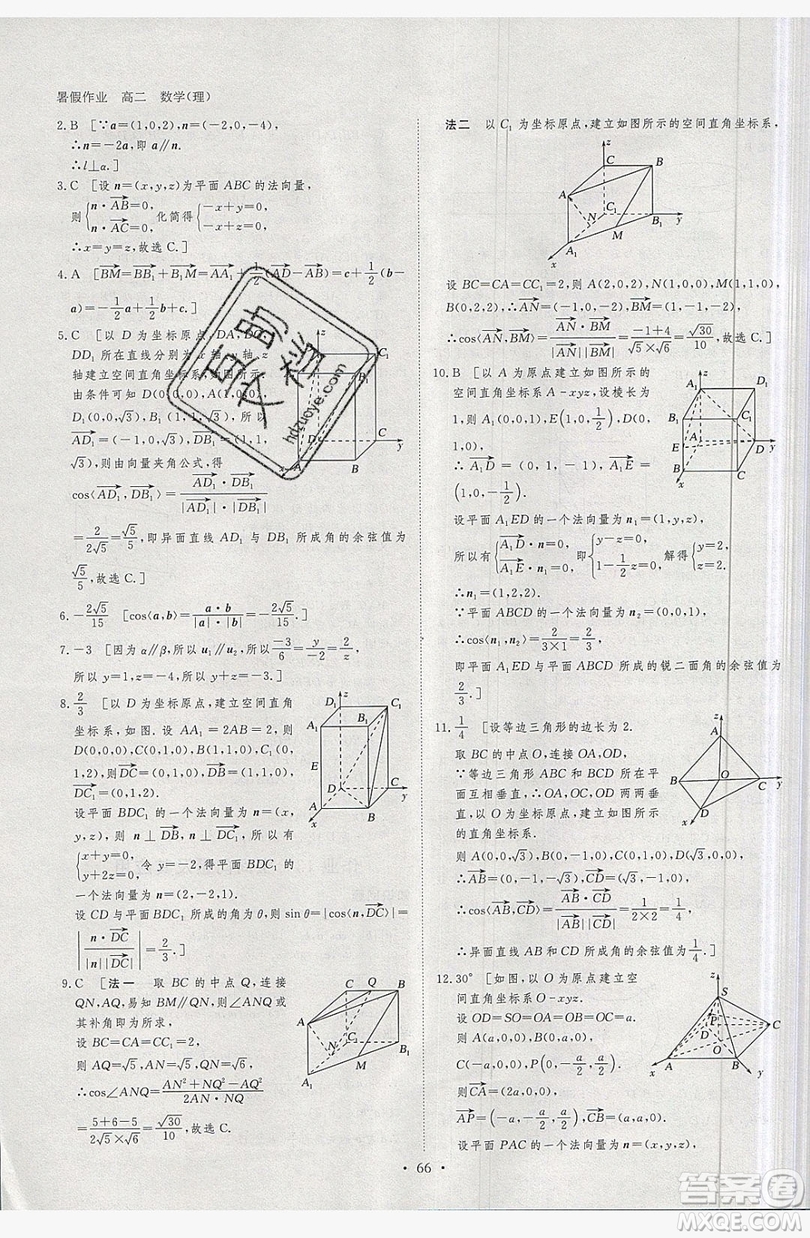 暑假作业 高二 数学(理)
2.B [∵a=(1,0,2),n=(-2,0,-4),
∴n=-2a,即a∥n.
∴l⊥α.]
3.C [设n=(x,y,z)为平面ABC的法向量,
则{n·AB=0, n·AC=0. 化简得{-x+y=0, -x+z=0.
∴x=y=z,故选C.]
4.A [BM=BB1+B1M=AA1+1/2(AD-AB)=c+1/2(b
-a)=-1/2a+1/2b+c.]
5.C [以D为坐标原点,DA,DC,
DD1所在直线分别为x轴,y轴,z
轴建立空间直角坐标系
由条件可知D(0,0,0),A(1,0,0),
D1(0,0,√3),B1(1,1,√3),所以
AD1=(-1,0,√3),DB1=(1,1,
√3),则由向量夹角公式,得
cos⟨AD1,DB1⟩=AD1·DB1/|AD1|·|DB1|
=2/2√5=√5/5,即异面直线AD1与DB1所成角的余弦值为
√5/5,故选C.]
6.-2√5/15 [cos⟨a,b⟩=a·b/|a|·|b|]
7.-3 [因为α∥β,所以u1∥u2,所以-3/6=y/-2=2/z.
所以y=1,z=-4,所以y+z=-3.]
8.2/3 [以D为坐标原点,建立空间直角
坐标系,如图.设AA1=2AB=2,则
D(0,0,0),B(1,1,0),C(0,1,0),C1(0,
1,2),则DC=(0,1,0),DB=(1,1,0),
DC1=(0,1,2).
设平面BDC1的一个法向量为n=(x,
y,z),则n⊥DB,n⊥DC1,所以有
{x+y=0, y+2z=0, 令y=-2,得平面BDC1的
一个法向量为n=(2,-2,1).
设CD与平面BDC1所成的角为θ,则sin θ=|cos⟨n,DC⟩|=
|n·DC/|n||DC||=2/3.]
9.C [法一 取BC的中点Q,连接
QN,AQ,易知BM∥QN,则∠ANQ
或其补角即为所求,
设BC=CA=CC1=2,
则AQ=√5,AN=√5,QN=√6,
∴cos∠ANQ=AN²+NQ²-AQ²/2AN·NQ
=5+6-5/2√5×√6=√30/10,故选C.
法二 以C1为坐标原点,建立如图所示的空间直角坐标系,
设BC=CA=CC1=2,则A(2,0,2),N(1,0,0),M(1,1,0),
B(0,2,2),∴AN=(-1,0,-2),BM=(1,-1,-2),
∴cos⟨AN,BM⟩=AN·BM/|AN||BM|=-1+4/√5×√6=√30/10,故选C.]
10.B [以A为原点建立如图所示的
空间直角坐标系A-xyz,设棱长为
1,则A1(0,0,1),E(1,0,1/2),D(0,
1,0),
∴A1D=(0,1,-1),A1E=
(1,0,-1/2).
设平面A1ED的一个法向量为n1=(1,y,z),
所以有{A1D·n1=0, A1E·n1=0, 即{y-z=0, 1-1/2z=0, 解得{y=2, z=2.
∴n1=(1,2,2).
∵平面ABCD的一个法向量为n2=(0,0,1),
∴cos⟨n1,n2⟩=2/3×1=2/3.
即平面A1ED与平面ABCD所成的锐二面角的余弦值为
2/3.]
11.1/4 [设等边三角形的边长为2.
取BC的中点O,连接OA,OD,
∵等边三角形ABC和BCD所在
平面互相垂直,∴OA,OC,OD两两垂
直,以O为坐标原点,建立如图所示的空
间直角坐标系.
则A(0,0,√3),B(0,-1,0),C(0,1,0),D(√3,0,0),
∴AB=(0,-1,-√3),CD=(√3,-1,0),
∴cos⟨AB,CD⟩=AB·CD/|AB||CD|=1/2×2=1/4,
∴异面直线AB和CD所成角的余弦值为1/4.]
12.30° [如图,以O为原点建立空
间直角坐标系O-xyz.
设OD=SO=OA=OB=OC=a.
则A(a,0,0),B(0,a,0),
C(-a,0,0),P(0,-a/2,a/2),
则CA=(2a,0,0),
AP=(-a,-a/2,a/2),CB=(a,a,0),
设平面PAC的一个法向量为n=(x,y,z),
·66·
互助文档
hdzuoye.com
答案圈
MXQE.COM